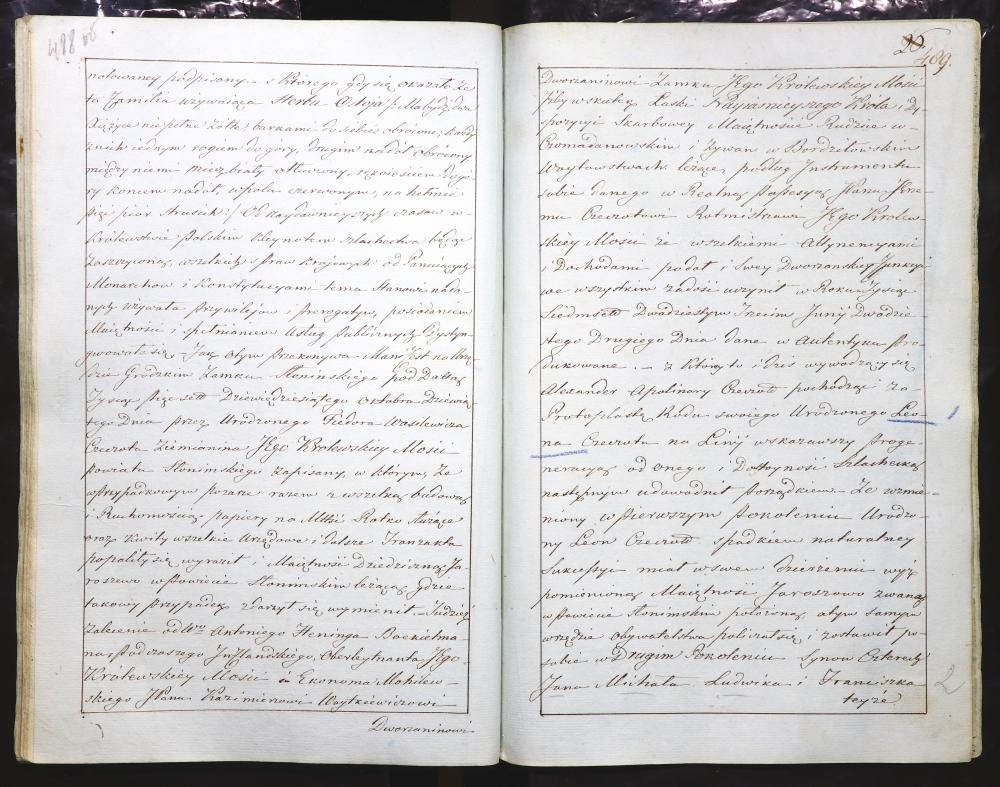 488 об
notowaney podpisany. — z Którego gdy się okazało że
ta Familia używaiąca Herbu Ostoja /: Ma bydź dwa
Xiężyca niepełne żółte, barkami do siebie obrócone, każdy
z nich iednym rogiem do góry, drugim nadół obrócony
między niemi miecz biały otłuczony, rękoieściem do gó-
ry koncem nadół, w polu czerwonym, na hełmie
pięć piór Strusich :/ Od naydawnieyszych czasow w
Królewstwie Polskim kleynotem szlachectwa będąc
zaszczyconą, wszelkich Praw krajowych od Panuiących
Monarchow i Konstytucyami temu Stanowi nada-
nych używała Przywileiow i Prerogatyw, posiadaniem
Maiętności i spełnianiem Usług Publicznych dystyn-
gwowała się, Jak o tym przekonywa Manifest na Urzę-
dzie Grodzkim Zamku Słonimskiego pod Dattą
Tysiąc Pięcset Dziewiędziesiątego Oktobra Dziewią-
tego Dnia przez Urodzonego Fiedora Wasilewicza
Czeczota Ziemianina Jego Królewskiey Mości
Powiatu Słonimskiego zapisany, w którym, że
w Przypadkowym pożarze razem z wszelką budową
i Ruchomością papiery na Mttść Rotko służące
oraz kwity wszelkie Urzędowe i dalsze Tranzakta
popaliły się wyraził i Maiętność Dziedziczną Ja-
roszewo w Powiecie Słonimskim leżącą, gdzie
takowy Przypadek zdarzył się wymienił. — Tudzież
Zalecenie od Wgo Antoniego Heninga Bockielma-
na, Podczaszego Inflandskiego, Oberleytnanta Jego
Królewskiey Mości a Ekonoma Mohilew-
skiego JPanu Kazimierzowi Woytkiewiczowi
Dworzaninowi
20 489.
Dworzaninowi Zamku Jego Królewskiey Mości
iżby w skutek Łaski Nayiaśnieyszego Króla i Dy-
spozycyi Skarbowey Maiętności Rudzice w
Czomadanowskim i Żywan w Bordziłowskim
Woytowstwach leżące, podług Instrumentu
sobie danego w Realną Possesyą JPanu Jene-
mu Czeczotowi Rotmistrzowi Jego Królew-
skiey Mości ze wszelkiemi Attynencyami
i Dochodami podał i Swey Dworzanskiey Funkcyi
we wszystkim zadość uczynił w Roku Tysiąc
Siedmsett Dwadziestym Trzecim Junij Dwadzie-
stego Drugiego Dnia dane w Autentyku Pro-
dukowane. — z Których to i dziś wywodzący się
Alexander Apolinary Czeczott pochodząc za
Protoplastę Rodu swoiego Urodzonego Leo-
na Czeczota na Linij wskazawszy Proge-
neracyą od onego i Dostoyność Szlachecką
następnym udowodnił porządkiem. — Że wzmie-
niony w Pierwszym Pokoleniu Urodzo-
ny Leon Czeczott spadkiem naturalney
Sukcessyi miał w swem dzierżeniu wyż
pomienioną Maiętność Jaroszowo zwaną
w Powiecie Słonimskim położoną, a tym samym
w rzędzie obywatelstwa policzał się i zostawił po
sobie w Drugim Pokoleniu Synow Czterech
Jana Michała Ludwika i Franciszka
teyże
1
2